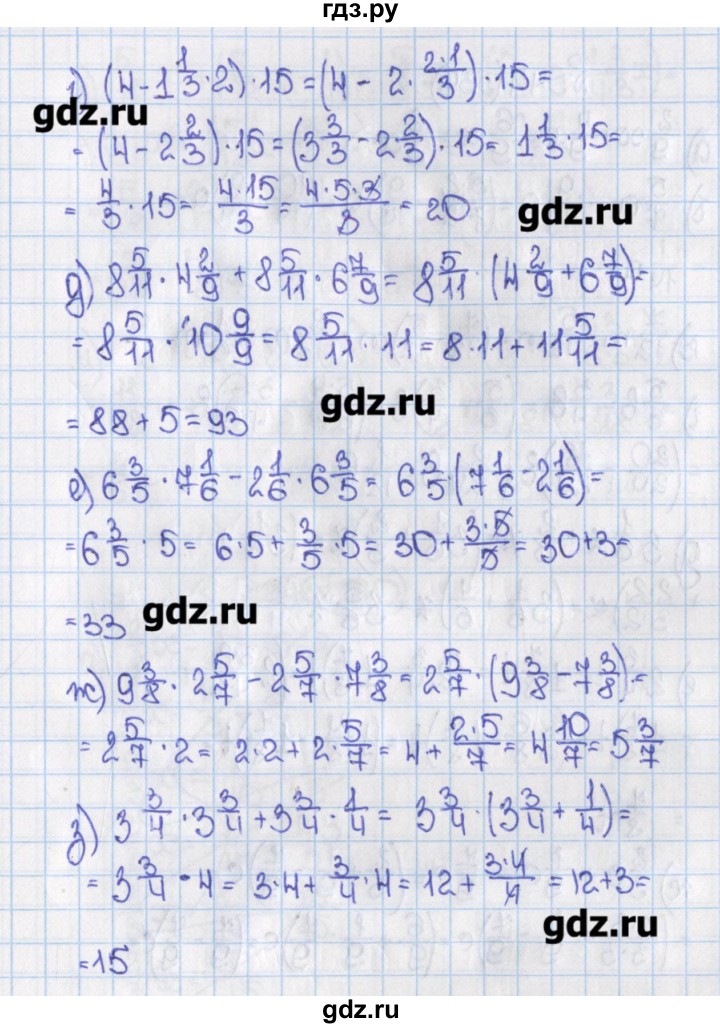 гдз.ру
г) (4 - 1 1/3 · 2) · 15 = (4 - 2 · 2·1/3) · 15 =
gdz.ru
= (4 - 2 2/3) · 15 = (3 3/3 - 2 · 2/3) · 15 = 1 1/3 · 15 =
= 4/3 · 15 = 4·15/3 = 4·5·3/3 = 20
gdz.ru
д) 8 5/11 · 4 2/9 + 8 5/11 · 6 7/9 = 8 5/11 · (4 2/9 + 6 7/9) =
= 8 5/11 · 10 9/9 = 8 5/11 · 11 = 8 · 11 + 11 5/11 =
gdz.ru
= 88 + 5 = 93
е) 6 3/5 · 7 1/6 - 2 1/6 · 6 3/5 = 6 3/5 · (7 1/6 - 2 1/6) =
= 6 3/5 · 5 = 6 · 5 + 3/5 · 5 = 30 + 3·5/5 = 30 + 3 =
= 33
gdz.ru
ж) 9 3/8 · 2 5/7 - 2 5/7 · 7 3/8 = 2 5/7 · (9 3/8 - 7 3/8) =
= 2 5/7 · 2 = 2 · 2 + 2 · 5/7 = 4 + 2·5/7 = 4 10/7 = 5 3/7
з) 3 3/4 · 3 3/4 + 3 3/4 · 1/4 = 3 3/4 · (3 3/4 + 1/4) =
= 3 3/4 · 4 = 3 · 4 + 3/4 · 4 = 12 + 3·4/4 = 12 + 3 =
gdz.ru
= 15
gdz.ru